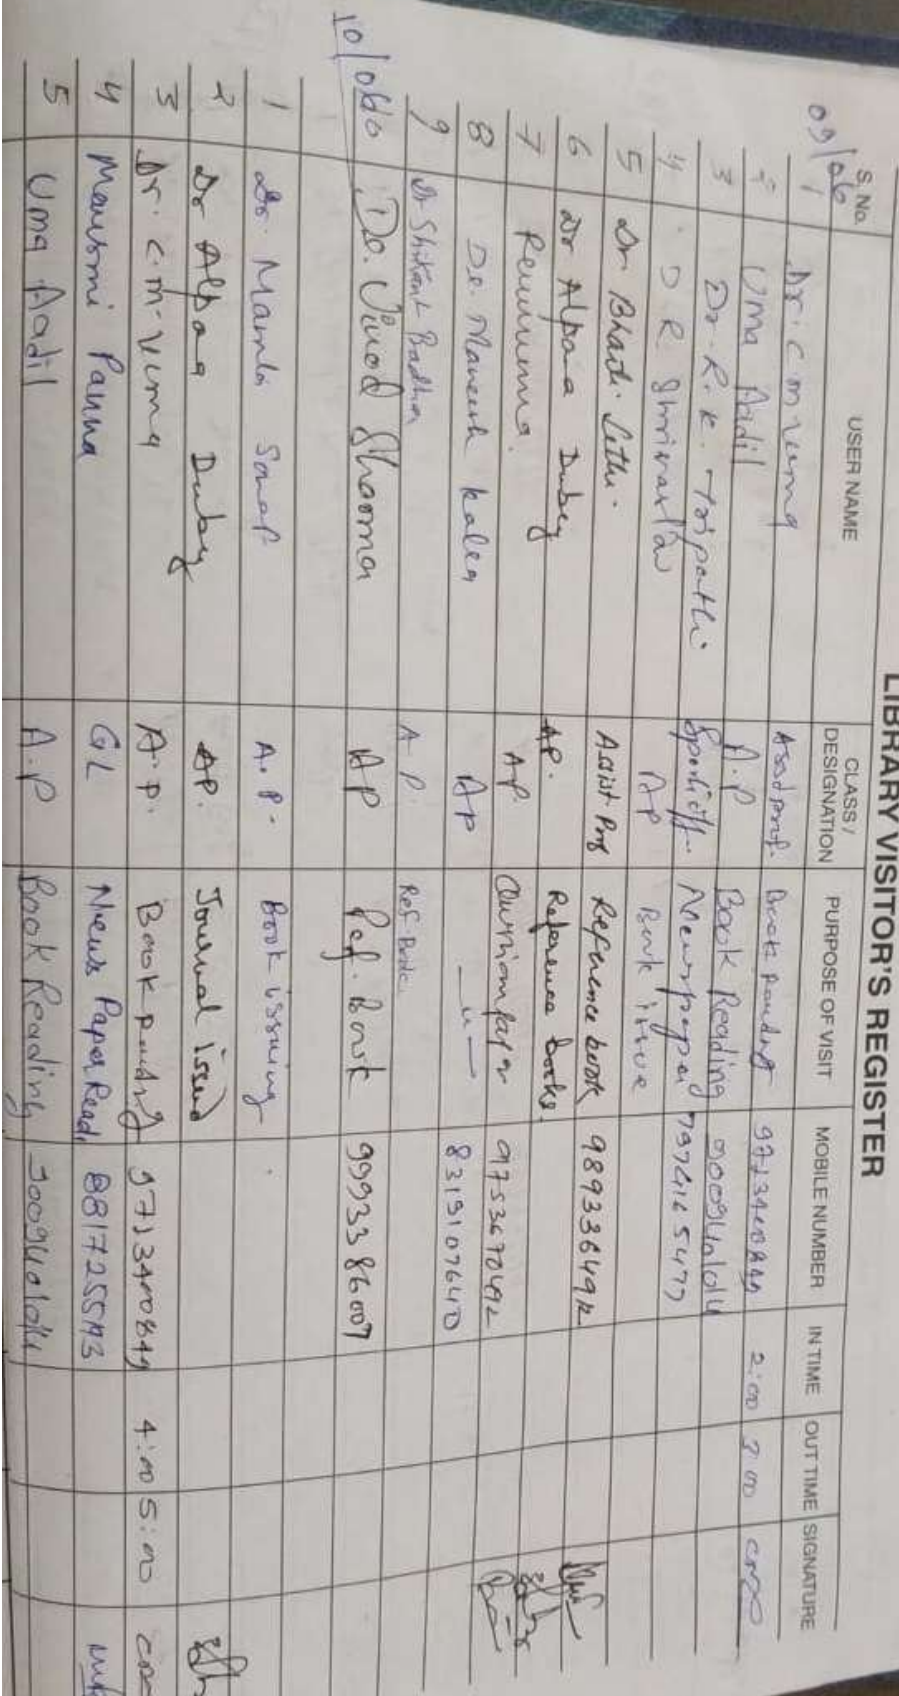 LIBRARY VISITOR'S REGISTER
S. No. USER NAME CLASS / DESIGNATION PURPOSE OF VISIT MOBILE NUMBER IN TIME OUT TIME SIGNATURE
09/06
1 Dr. C m verma Asst prof. Book reading 2:00 3:00
2 Uma Aadil A.P Book Reading 9009401014
3 Dr. R. K. Tripathi Newspaper 7974165477
4 D R Shrivastava AP Book issue
5 Dr. Bharti Sethi. Assist. Prof Reference book
6 Dr Alpana Dubey AP. Reference books.
7 AP. 9753670492
8 De. Maneesh Kalea AP —"— 8319107640
9 A. P. Ref Book.
10/06
De. Vinod Sharma AP Ref. Book 9993386009
1 Dr. Mamta A.P. Book issuing
2 Dr Alpana Dubey AP. Journal issued
3 Dr. C m. verma A.P. Book reading 4:00 5:00
4 Mausmi Panna GL News Paper Read.
5 Uma Aadil A.P Book Reading 9009401014